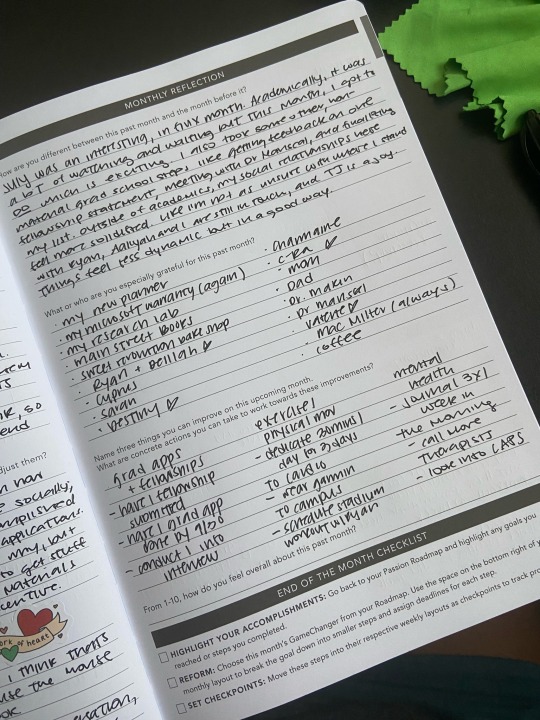 MONTHLY REFLECTION
How are you different between this past month and the month before it?
July was an interesting, in my month. Academically, it was
a lot of watching and waiting but this month, I got to
DO which is exciting. I also took some other, non-
material grad school steps like getting feedback on one
fellowship statement, meeting with Dr Manseal, and finalizing
my list. Outside of academics, my social relationships here
feel more solidified. Like I'm not as unsure with where I stand
with Ryan, Aaliyah and I are still in touch, and TJ is a joy.
Things feel less dynamic but in a good way.
What or who are you especially grateful for this past month?
· my new planner
· my microsoft warranty (again)
· my research lab
· main street books
· sweet revolution bake shop
· Ryan + Delilah
· cyprus
· sarah
· Destiny
· charmaine
· mom
· Dad
· Dr. makin
· Dr manseal
· Mac Miller (always)
· coffee
Name three things you can improve on this upcoming month.
What are concrete actions you can take to work towards these improvements?
grad apps
+ fellowships
- have 1 fellowship
submitted
- have 1 grad app
done by 9/20
- conduct 1 info
interview
exercise /
physical mov
- dedicate 20mins /
day for 3 days
to cardio
- wear garmin
to campus
- schedule stadium
workout w/ Ryan
mental
health
- journal 3x /
week in
the morning
- call more
therapists
- look into CAPS
From 1-10, how do you feel overall about this past month?
END OF THE MONTH CHECKLIST
HIGHLIGHT YOUR ACCOMPLISHMENTS: Go back to your Passion Roadmap and highlight any goals you
reached or steps you completed.
REFORM: Choose this month's GameChanger from your Roadmap. Use the space on the bottom right of
monthly layout to break the goal down into smaller steps and assign deadlines for each step.
SET CHECKPOINTS: Move these steps into their respective weekly layouts as checkpoints to track
so
end
djust them?
had
socially,
applications.
why, but
to get stuff
materials
work of heart
I think that's
use the worse